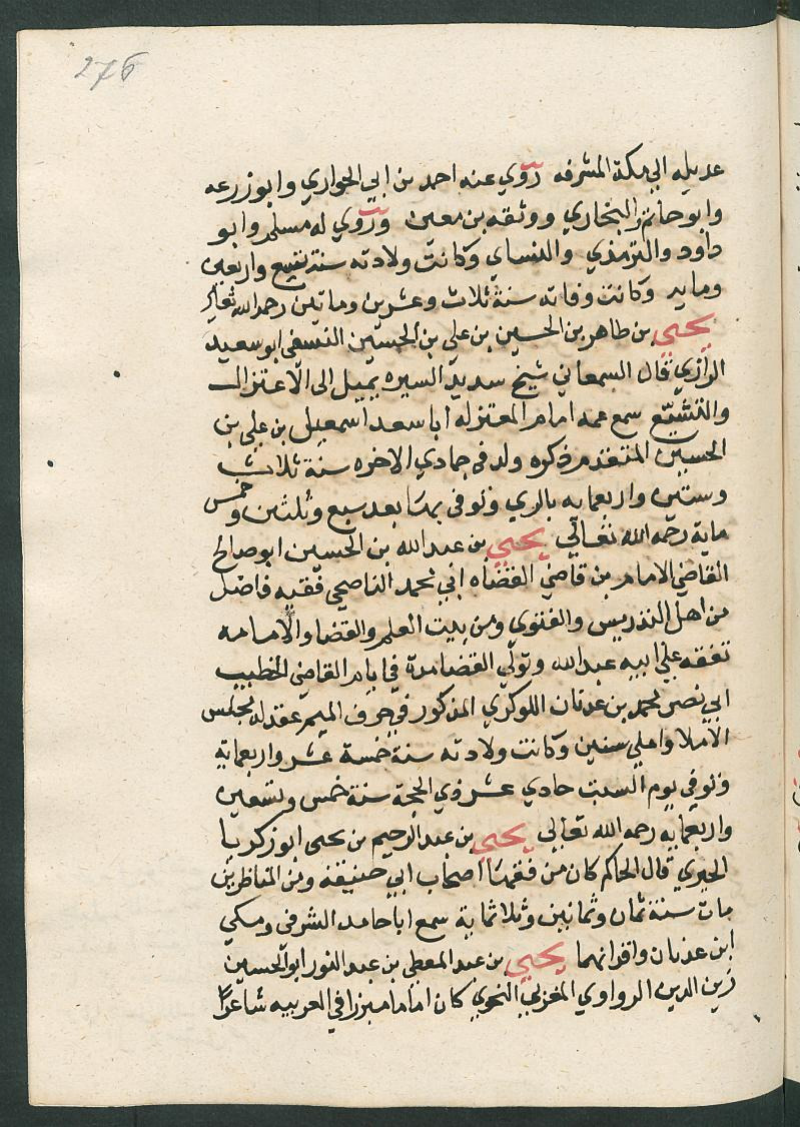 276
عديله الي مكة المشرفه روي عنه احمد بن ابي الحواري وابوزرعه
وابوحاتم والبخاري ووثقه بن معين وروي له مسلم وابو
داود والترمذي والنساي وكانت ولادته سنة تسع واربعين
ومايه وكانت وفاته سنة ثلاث وعشرين وماتين رحمه الله تعالي
يحيي بن طاهر بن الحسين بن علي بن الحسين النسفي ابو سعيد
الرازي قال السمعاني شيخ سديد السيره يميل الى الاعتزال
والتشيع سمع عمه امام المعتزله ابا سعد اسمعيل بن علي بن
الحسين المتقدم ذكره ولد في جمادي الاخره سنة ثلاث
وستين واربعمايه بالري وتوفي بها بعد سبع وثلثين وخمس
ماية رحمه الله تعالي يحيي بن عبد الله بن الحسين ابو صالح
القاضي الامام بن قاضي القضاه ابي محمد الناصحي فقيه فاضل
من اهل التدريس والفتوي ومن بيت العلم والقضا والامامه
تفقه علي ابيه عبد الله وتولي القضا مدة في ايام القاضي الخطيب
ابي نصر محمد بن عدنان اللوكري المذكور في حرف الميم عقد له مجلس
الاملا واملي سنين وكانت ولادته سنة خمسة عشر واربعمايه
وتوفي يوم السبت حادي عشر ذي الحجة سنة خمس وتسعين
واربعمايه رحمه الله تعالي يحيي بن عبد الرحيم بن يحيى ابو زكريا
الحيري قال الحاكم كان من فقها اصحاب ابي حنيفه ومن المناظرين
مات سنة ثمان وثمانين وثلاثماية سمع ابا حامد الشرقي ومكي
ابن عدنان واقرانهما يحيي بن عبد المعطي بن عبد النور ابو الحسين
زين الدين الرواوي المغربي النحوي كان اماما مبرزا في العربيه شاعرا